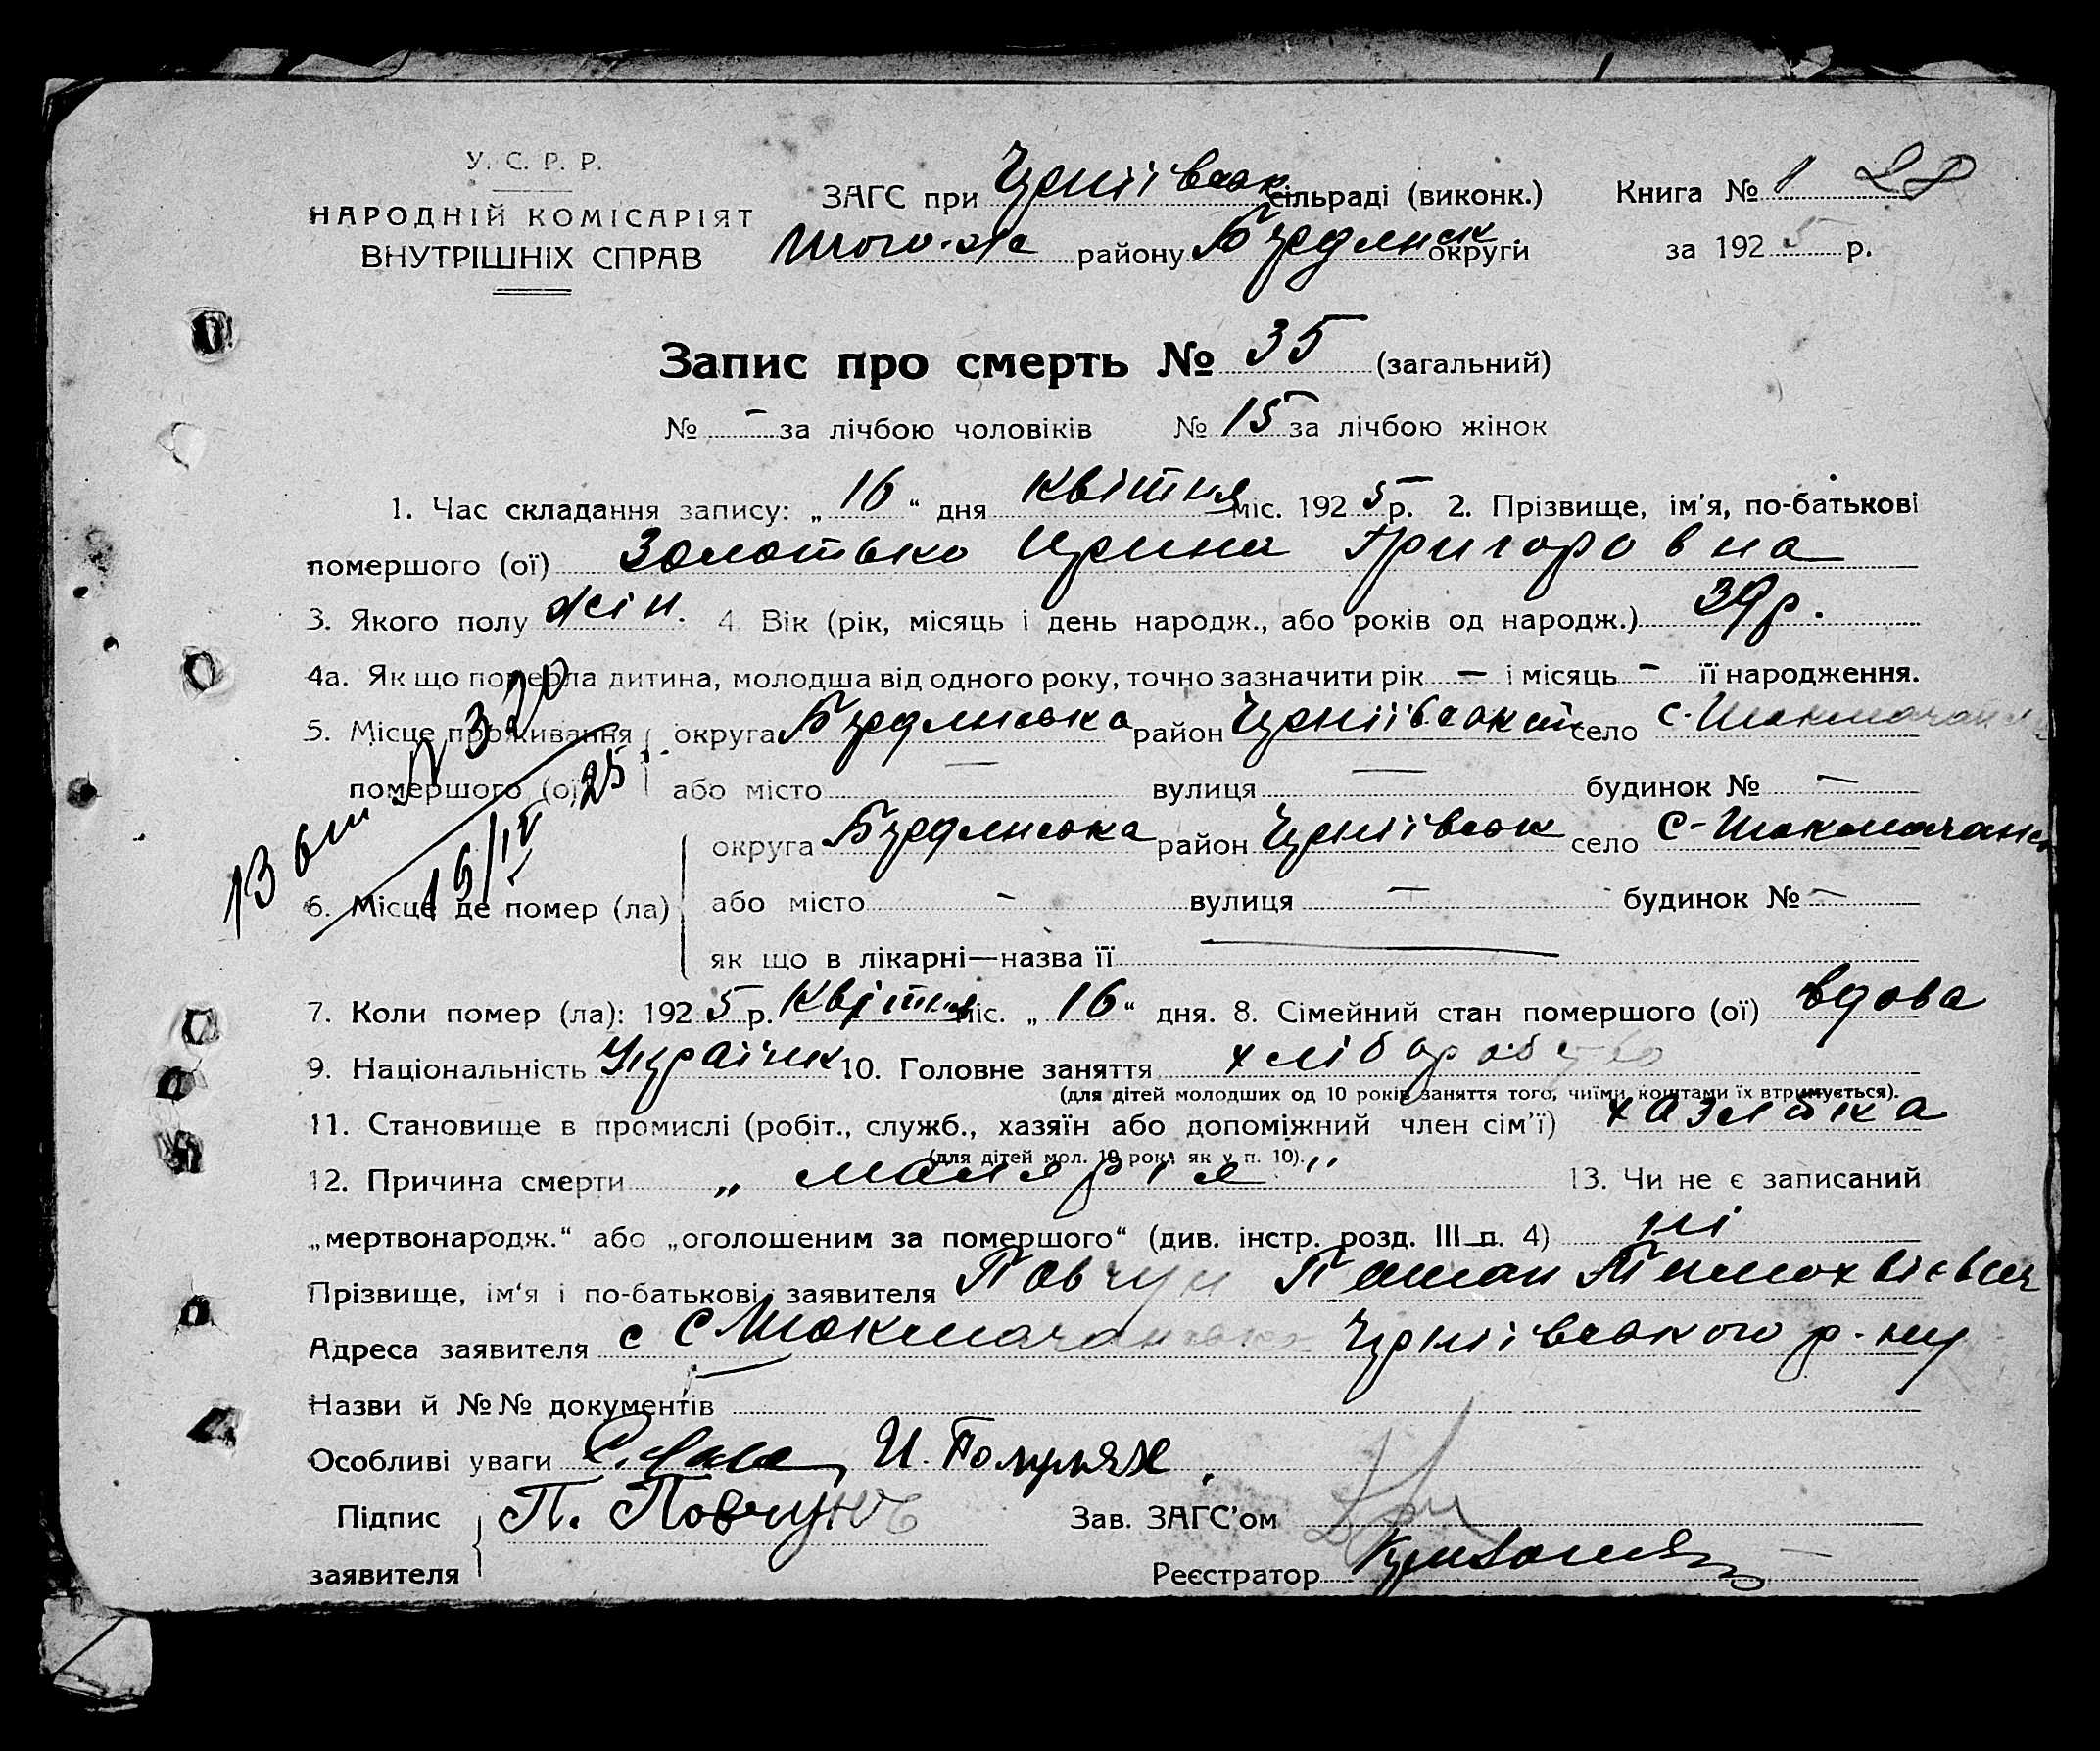 У. С. Р. Р.
НАРОДНІЙ КОМІСАРІЯТ
ВНУТРІШНІХ СПРАВ
ЗАГС при Чернігівськ сільраді (виконк.)
Того-же району Бердянск. округи
Книга № 1 28
за 1925 р.
Запис про смерть № 35 (загальний)
№ - за лічбою чоловіків № 15 за лічбою жінок
1. Час складання запису: „16“ дня квітня міс. 1925 р. 2. Прізвище, ім'я, по-батькові
помершого (ої) Золотько Ирина Григоровна
3. Якого полу жін. 4. Вік (рік, місяць і день народж., або років од народж.) 39 р.
4а. Як що померла дитина, молодша від одного року, точно зазначити рік — і місяць - її народження.
5. Місце проживання помершого (ої) округа Бердянська район село с.
або місто — вулиця — будинок № —
В вит N 320
16/IV 25
6. Місце де помер (ла) округа Бердянська район село с-
або місто - вулиця — будинок № —
як що в лікарні—назва її —
7. Коли помер (ла): 1925 р. квітня міс. „16“ дня. 8. Сімейний стан помершого (ої) вдова
9. Національність Україн. 10. Головне заняття хліборобство
(для дітей молодших од 10 років заняття того, чиїми коштами їх втримується).
11. Становище в промислі (робіт., служб., хазяїн або допоміжний член сім'ї) хазяйка
(для дітей мол. 10 рок. як у п. 10).
12. Причина смерти „малярія“ 13. Чи не є записаний
„мертвонародж.“ або „оголошеним за помершого“ (див. інстр. розд. III п. 4) ні
Прізвище, ім'я і по-батькові заявителя Повчун
Адреса заявителя с р-ну
Назви й №№ документів —
Особливі уваги И.
Підпис заявителя П. Повчунъ
Зав. ЗАГС'ом
Реєстратор